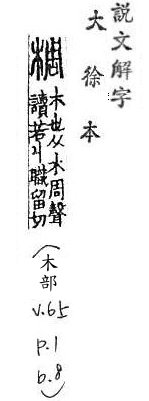 說文解字
大徐本
椆 木也从木周聲
讀若丩職留切
(木部
v.65
p.1
b.8)